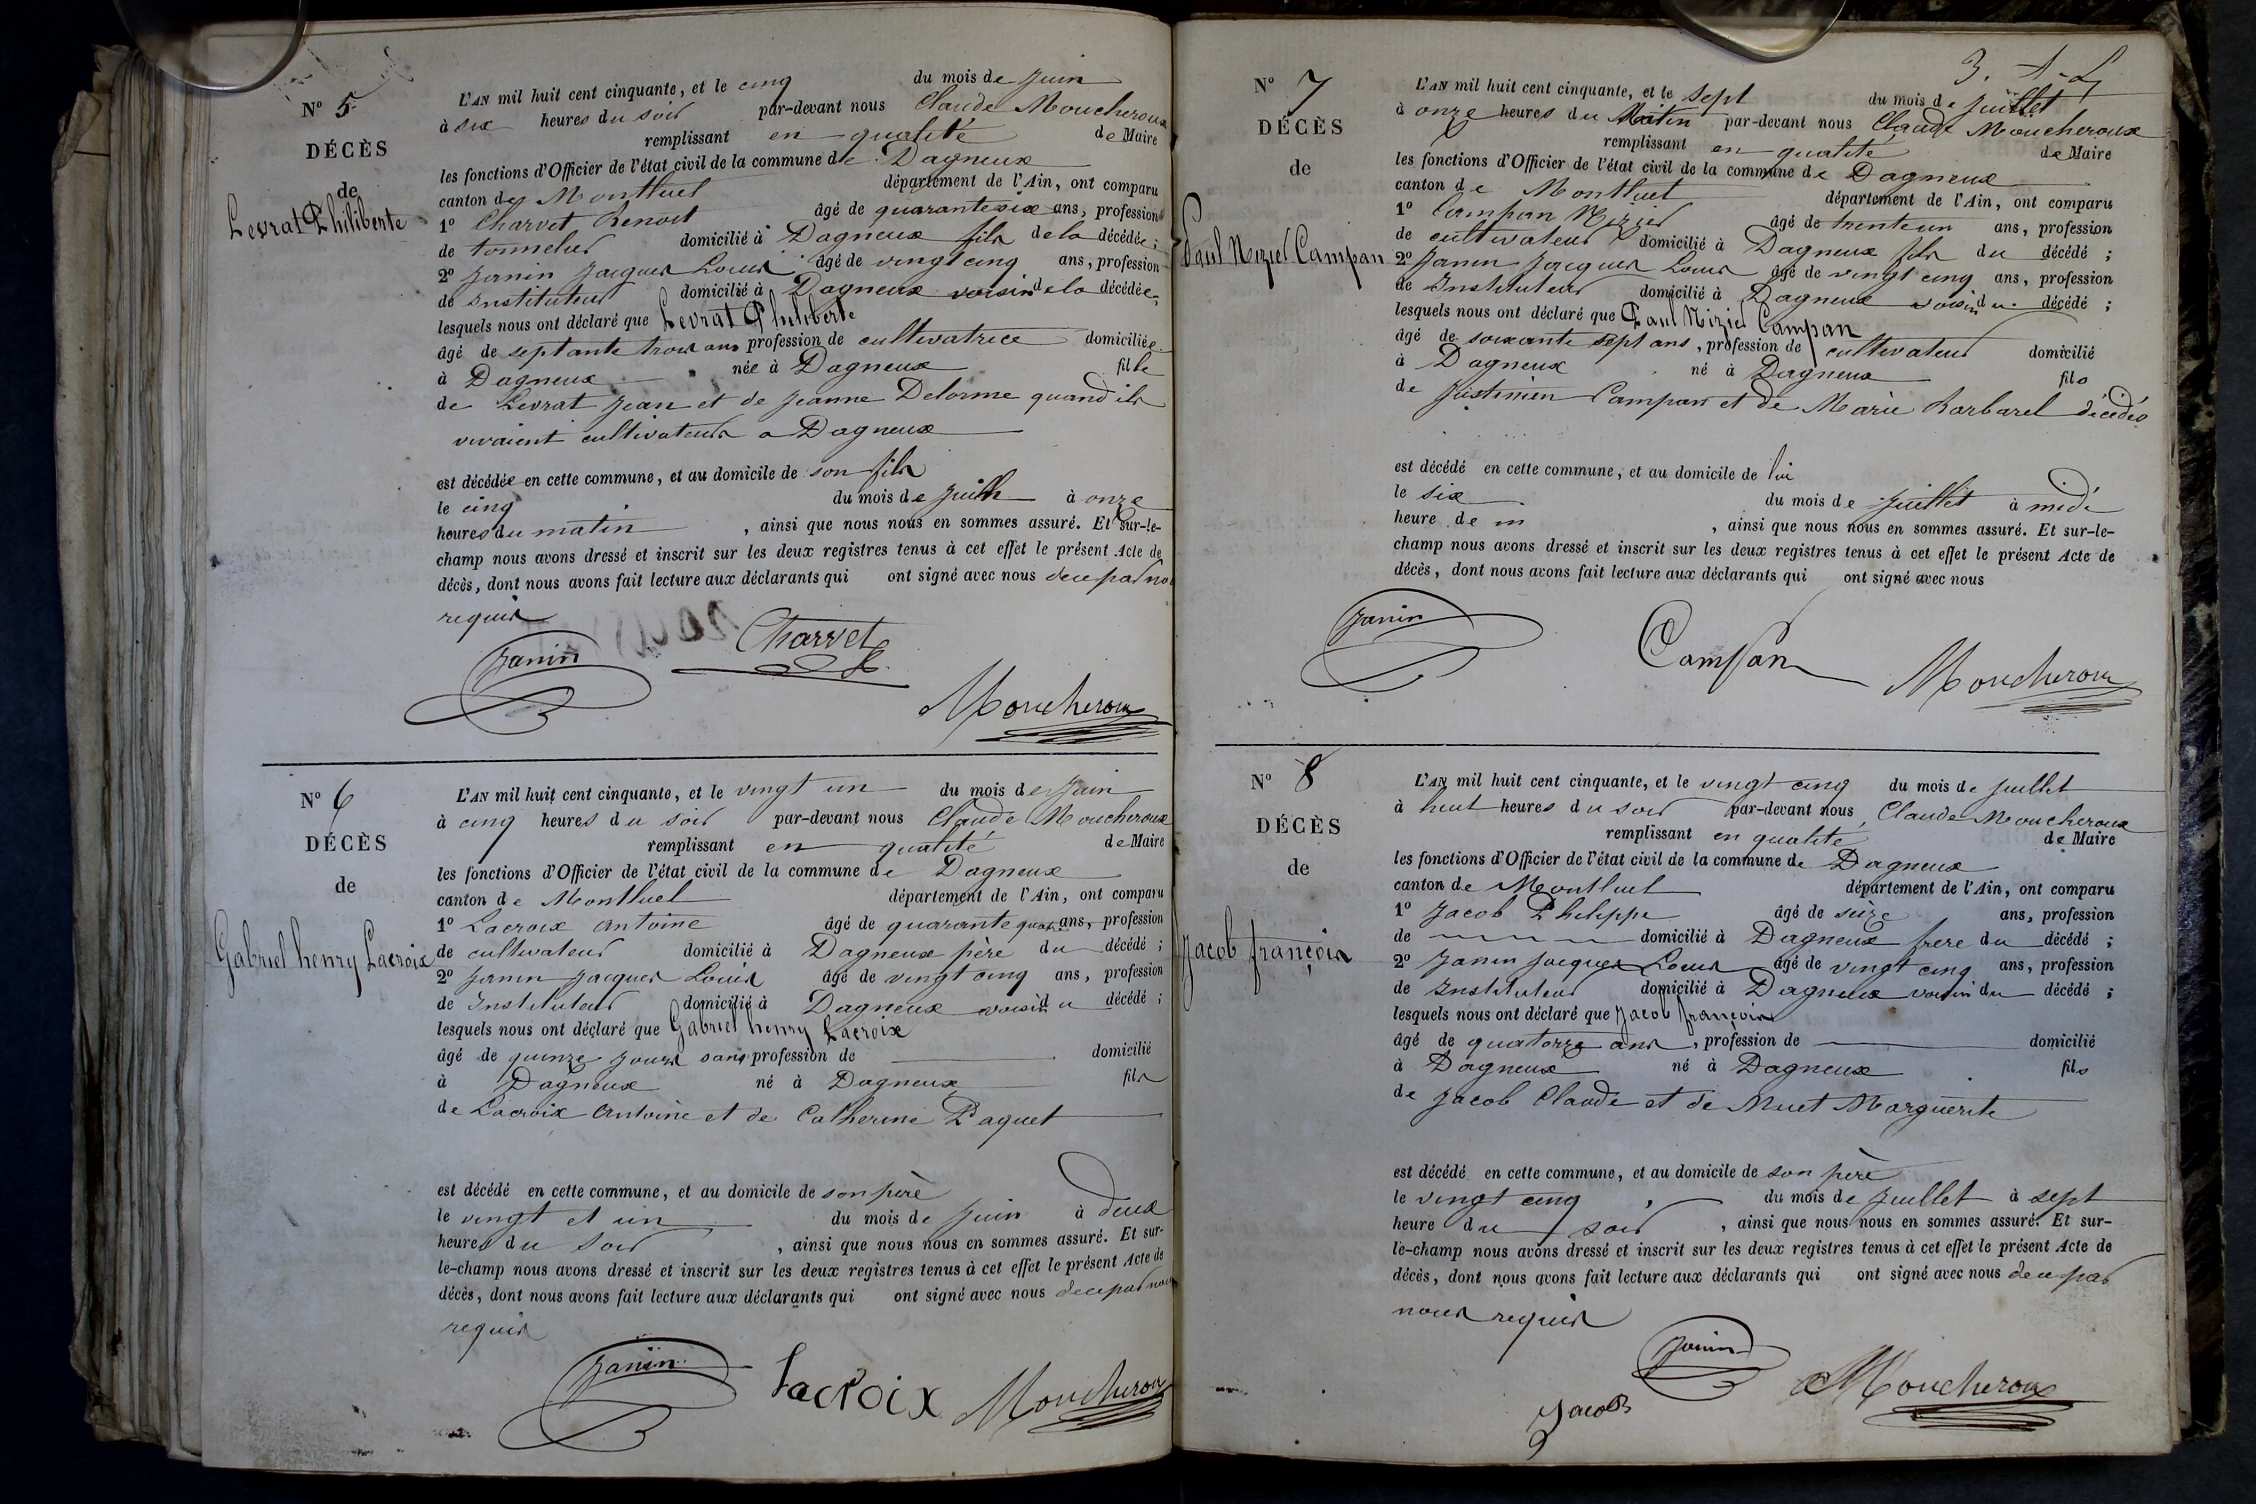 N° 5
DÉCÈS
de
Levrat Philiberte
L'AN mil huit cent cinquante, et le cinq du mois de juin
à six heures du soir par-devant nous Claude Moucheroux
remplissant en qualité de Maire
les fonctions d'Officier de l'état civil de la commune de Dagneux
canton de Montluel département de l'Ain, ont comparu
1° Charvet Benoit âgé de quarante six ans, profession
de tonnelier domicilié à Dagneux fils de la décédée ;
2° Janin Jacques Louis âgé de vingt cinq ans, profession
de Instituteur domicilié à Dagneux voisin de la décédée ;
lesquels nous ont déclaré que Levrat Philiberte
âgé de septante trois ans profession de cultivatrice domiciliée
à Dagneux née à Dagneux fille
de Levrat Jean et de Jeanne Delorme quand ils
vivaient cultivateurs a Dagneux
est décédée en cette commune, et au domicile de son fils
le cinq du mois de juin à onze
heures du matin , ainsi que nous nous en sommes assuré. Et sur-le-
champ nous avons dressé et inscrit sur les deux registres tenus à cet effet le présent Acte de
décès, dont nous avons fait lecture aux déclarants qui ont signé avec nous
requis
Janin
Charvet
Moucheroux
N° 6
DÉCÈS
de
Gabriel henry Lacroix
L'AN mil huit cent cinquante, et le vingt un du mois de juin
à cinq heures du soir par-devant nous Claude Moucheroux
remplissant en qualité de Maire
les fonctions d'Officier de l'état civil de la commune de Dagneux
canton de Montluel département de l'Ain, ont comparu
1° Lacroix Antoine âgé de quarante quatre ans, profession
de cultivateur domicilié à Dagneux père du décédé ;
2° Janin Jacques Louis âgé de vingt cinq ans, profession
de Instituteur domicilié à Dagneux voisin du décédé ;
lesquels nous ont déclaré que Gabriel henry Lacroix
âgé de quinze jours sans profession de domicilié
à Dagneux né à Dagneux fils
de Lacroix Antoine et de Catherine Paquet
est décédé en cette commune, et au domicile de son père
le vingt et un du mois de juin à deux
heures du soir , ainsi que nous nous en sommes assuré. Et sur-
le-champ nous avons dressé et inscrit sur les deux registres tenus à cet effet le présent Acte de
décès, dont nous avons fait lecture aux déclarants qui ont signé avec nous
requis
Janin
Lacroix
Moucheroux
N° 7
DÉCÈS
de
Paul Nizier Campan
L'AN mil huit cent cinquante, et le sept du mois de juillet
à onze heures du Matin par-devant nous Claude Moucheroux
remplissant en qualité de Maire
les fonctions d'Officier de l'état civil de la commune de Dagneux
canton de Montluel département de l'Ain, ont comparu
1° Campan Nizier âgé de trente un ans, profession
de cultivateur domicilié à Dagneux fils du décédé ;
2° Janin Jacques Louis âgé de vingt cinq ans, profession
de Instituteur domicilié à Dagneux voisin du décédé ;
lesquels nous ont déclaré que Paul Nizier Campan
âgé de soixante sept ans , profession de cultivateur domicilié
à Dagneux né à Dagneux fils
de Justinien Campan et de Marie Barbarel décédés
est décédé en cette commune, et au domicile de lui
le six du mois de juillet à midi
heure de , ainsi que nous nous en sommes assuré. Et sur-le-
champ nous avons dressé et inscrit sur les deux registres tenus à cet effet le présent Acte de
décès, dont nous avons fait lecture aux déclarants qui ont signé avec nous
Janin
Campan
Moucheroux
N° 8
DÉCÈS
de
Jacob françois
L'AN mil huit cent cinquante, et le vingt cinq du mois de juillet
à huit heures du soir par-devant nous Claude Moucheroux
remplissant en qualité de Maire
les fonctions d'Officier de l'état civil de la commune de Dagneux
canton de Montluel département de l'Ain, ont comparu
1° Jacob Philippe âgé de seize ans, profession
de domicilié à Dagneux frere du décédé ;
2° Janin Jacques Louis âgé de vingt cinq ans, profession
de Instituteur domicilié à Dagneux voisin du décédé ;
lesquels nous ont déclaré que Jacob françois
âgé de quatorze ans , profession de domicilié
à Dagneux né à Dagneux fils
de Jacob Claude et de Muet Marguerite
est décédé en cette commune, et au domicile de son père
le vingt cinq du mois de juillet à sept
heure du soir , ainsi que nous nous en sommes assuré. Et sur-
le-champ nous avons dressé et inscrit sur les deux registres tenus à cet effet le présent Acte de
décès, dont nous avons fait lecture aux déclarants qui ont signé avec nous de ce par
nous requis
Janin
Jacob
Moucheroux